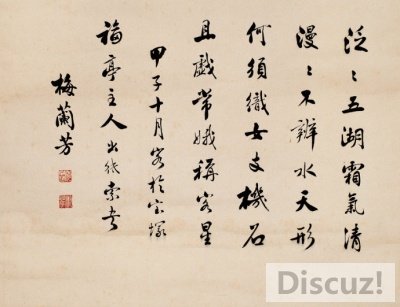 泛〻五湖霜氣清
漫〻不辨水天形
何須織女支機石
且戲常娥稱客星
甲子十月客於寶塚
福亭主人出紙索書
梅蘭芳
Discuz!